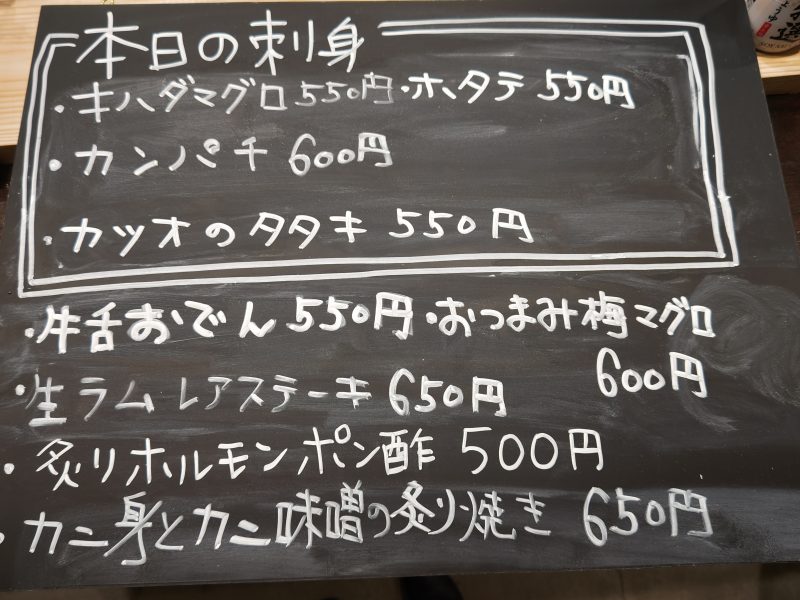 本日の刺身
・キハダマグロ550円・ホタテ 550円
・カンパチ 600円
・カツオのタタキ 550円
・牛舌おでん 550円・おつまみ梅マグロ
600円
・生ラムレアステーキ 650円
・炙りホルモンポン酢 500円
・カニ身とカニ味噌の炙り焼き 650円